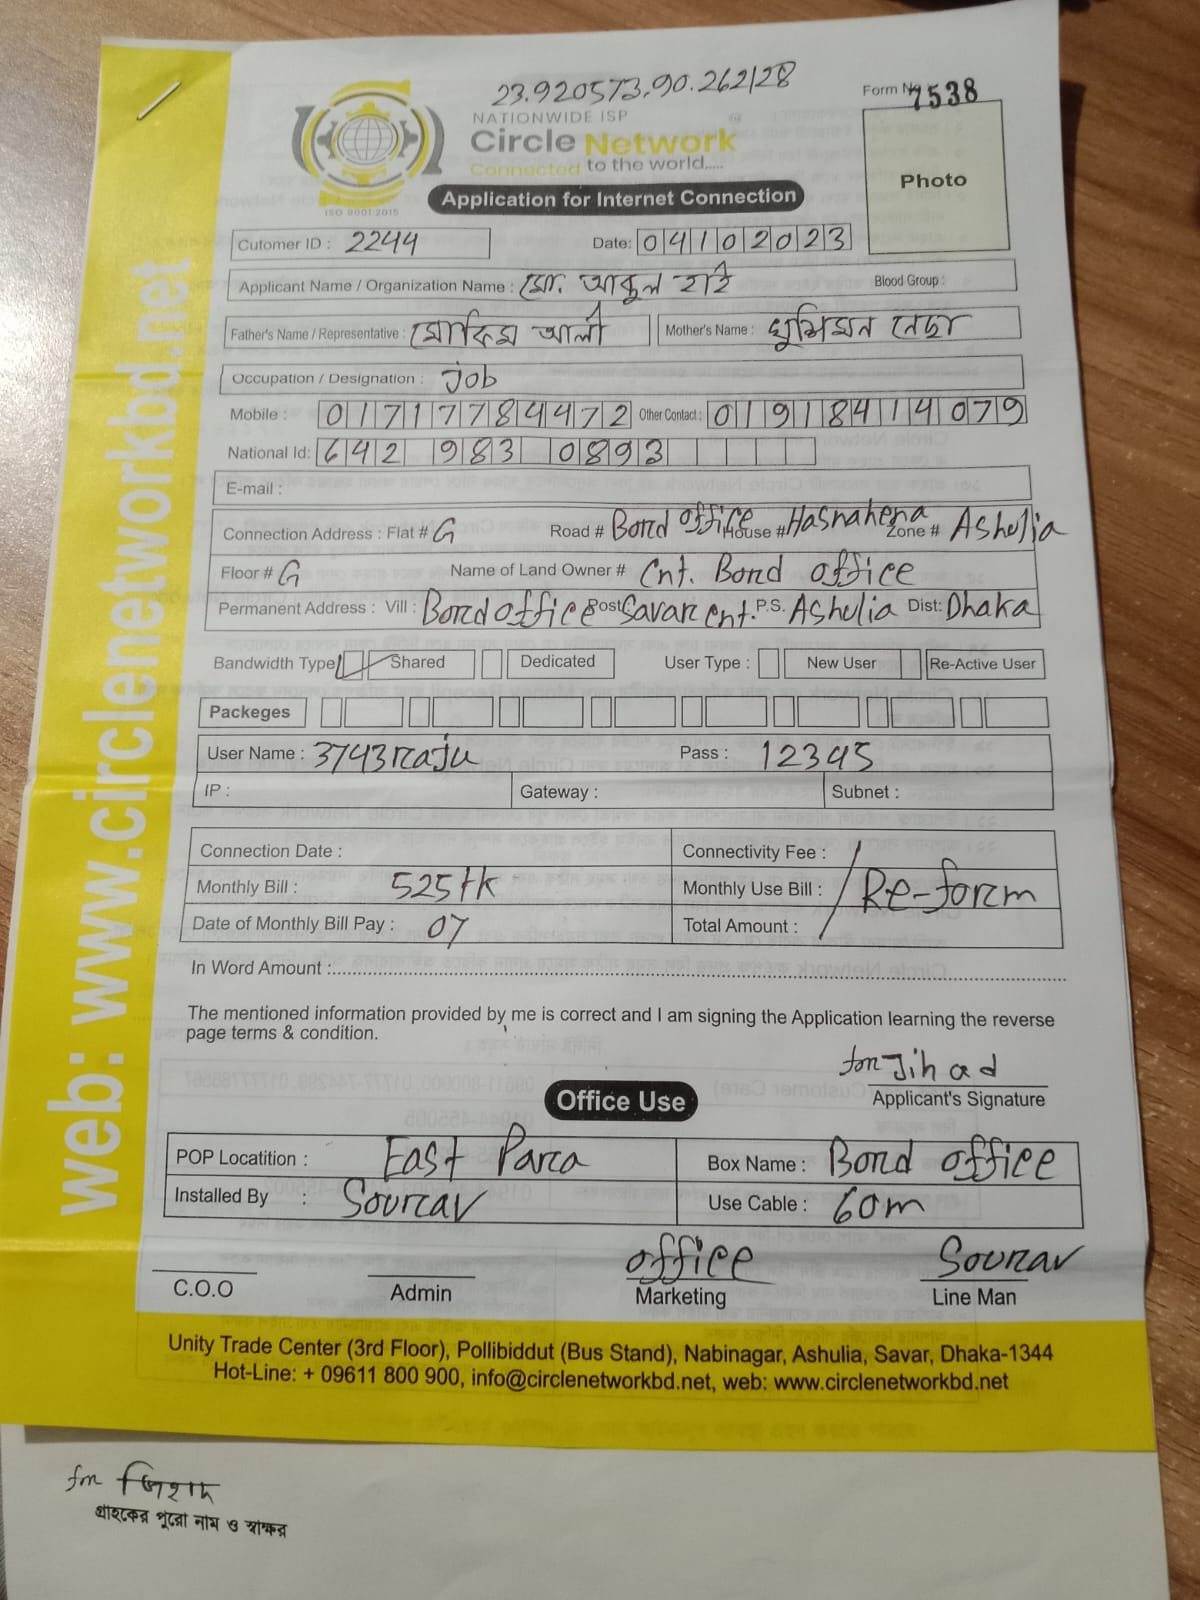 23.920573,90.262128
Form No 7538
NATIONWIDE ISP
Circle Network
Connected to the world.....
ISO 9001:2015
Photo
Application for Internet Connection
Cutomer ID : 2244 Date: 04102023
Applicant Name / Organization Name : মো. আব্দুল হাই Blood Group :
Father's Name / Representative : মোকিম আলী Mother's Name : নেছা
Occupation / Designation : Job
Mobile : 01717784472 Other Contact : 01918414079
National Id: 642 983 0893
E-mail :
Connection Address : Flat # G Road # Bord office House # Hasnahena Zone # Ashulia
Floor # G Name of Land Owner # Cnt. Bord office
Permanent Address : Vill : Bord office Post: Savar Cnt. P.S. Ashulia Dist: Dhaka
Bandwidth Type: Shared Dedicated User Type : New User Re-Active User
Packeges
User Name : 3743raju Pass : 12345
IP : Gateway : Subnet :
Connection Date : Connectivity Fee :
Monthly Bill : 525tk Monthly Use Bill : Re-form
Date of Monthly Bill Pay : 07 Total Amount :
In Word Amount :
The mentioned information provided by me is correct and I am signing the Application learning the reverse
page terms & condition.
for Jihad
Applicant's Signature
Office Use
POP Locatition : East Para Box Name : Bord office
Installed By : Sourav Use Cable : 60m
office Sourav
C.O.O Admin Marketing Line Man
Unity Trade Center (3rd Floor), Pollibiddut (Bus Stand), Nabinagar, Ashulia, Savar, Dhaka-1344
Hot-Line: + 09611 800 900, info@circlenetworkbd.net, web: www.circlenetworkbd.net
web: www.circlenetworkbd.net
for জিহাদ
গ্রাহকের পুরো নাম ও স্বাক্ষর